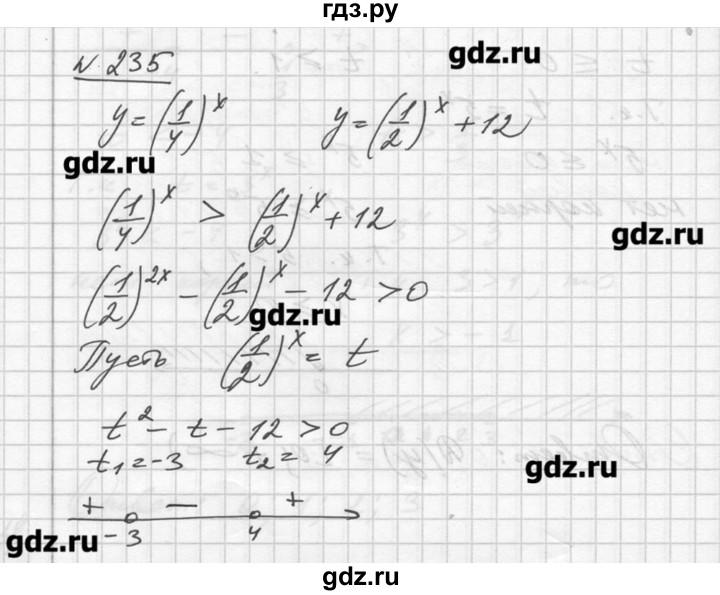 гдз.ру
N 235
gdz.ru
y=(1/4)^x y=(1/2)^x+12
gdz.ru
(1/4)^x > (1/2)^x+12
gdz.ru
(1/2)^2x - (1/2)^x - 12 > 0
gdz.ru
Пусть (1/2)^x = t
t^2 - t - 12 > 0
t₁=-3 t₂= 4
gdz.ru
+ − +
-3 4
gdz.ru
gdz.ru